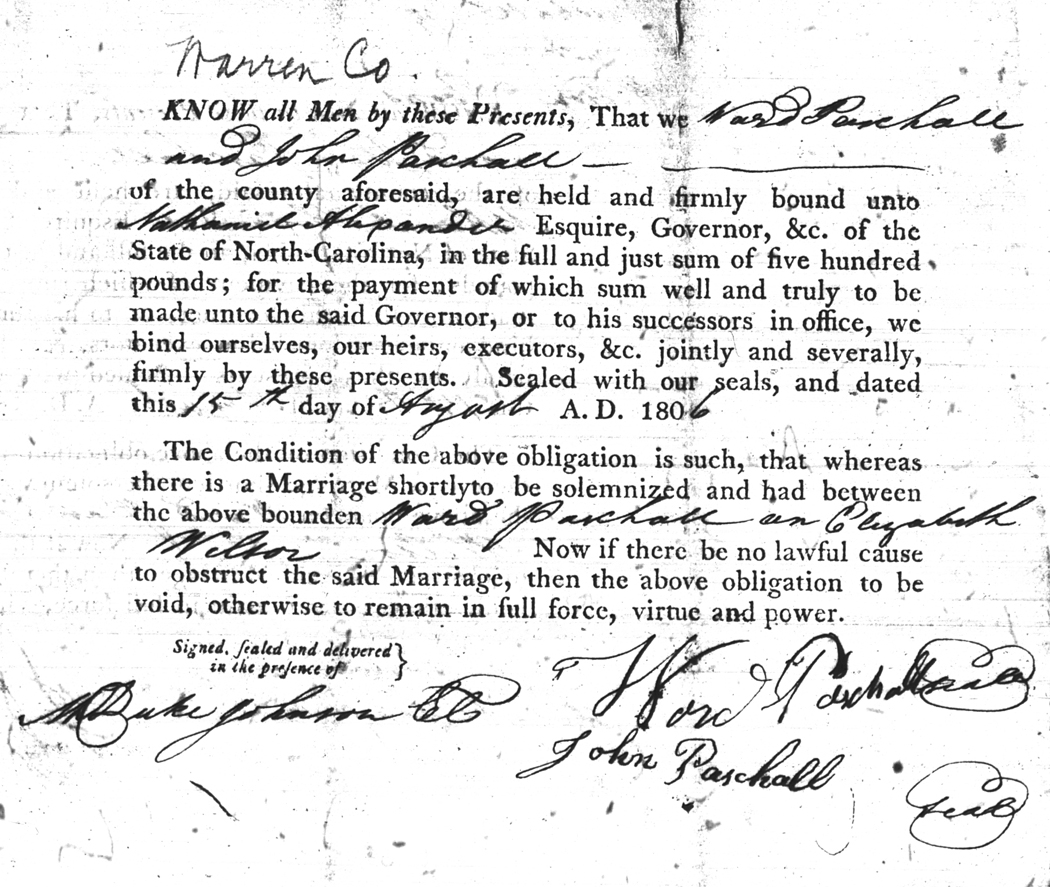 Warren Co.
KNOW all Men by these Presents, That we Ward Paschall
and John Paschall —
of the county aforesaid, are held and firmly bound unto
Nathaniel Alexander Esquire, Governor, &c. of the
State of North-Carolina, in the full and just sum of five hundred
pounds; for the payment of which sum well and truly to be
made unto the said Governor, or to his successors in office, we
bind ourselves, our heirs, executors, &c. jointly and severally,
firmly by these presents. Sealed with our seals, and dated
this 15th day of August A. D. 1806
The Condition of the above obligation is such, that whereas
there is a Marriage shortly to be solemnized and had between
the above bounden Ward Paschall an Elizabeth
Wilson Now if there be no lawful cause
to obstruct the said Marriage, then the above obligation to be
void, otherwise to remain in full force, virtue and power.
Signed, sealed and delivered
in the presence of
M Duke Johnson CC
Word Paschall seal
John Paschall
seal